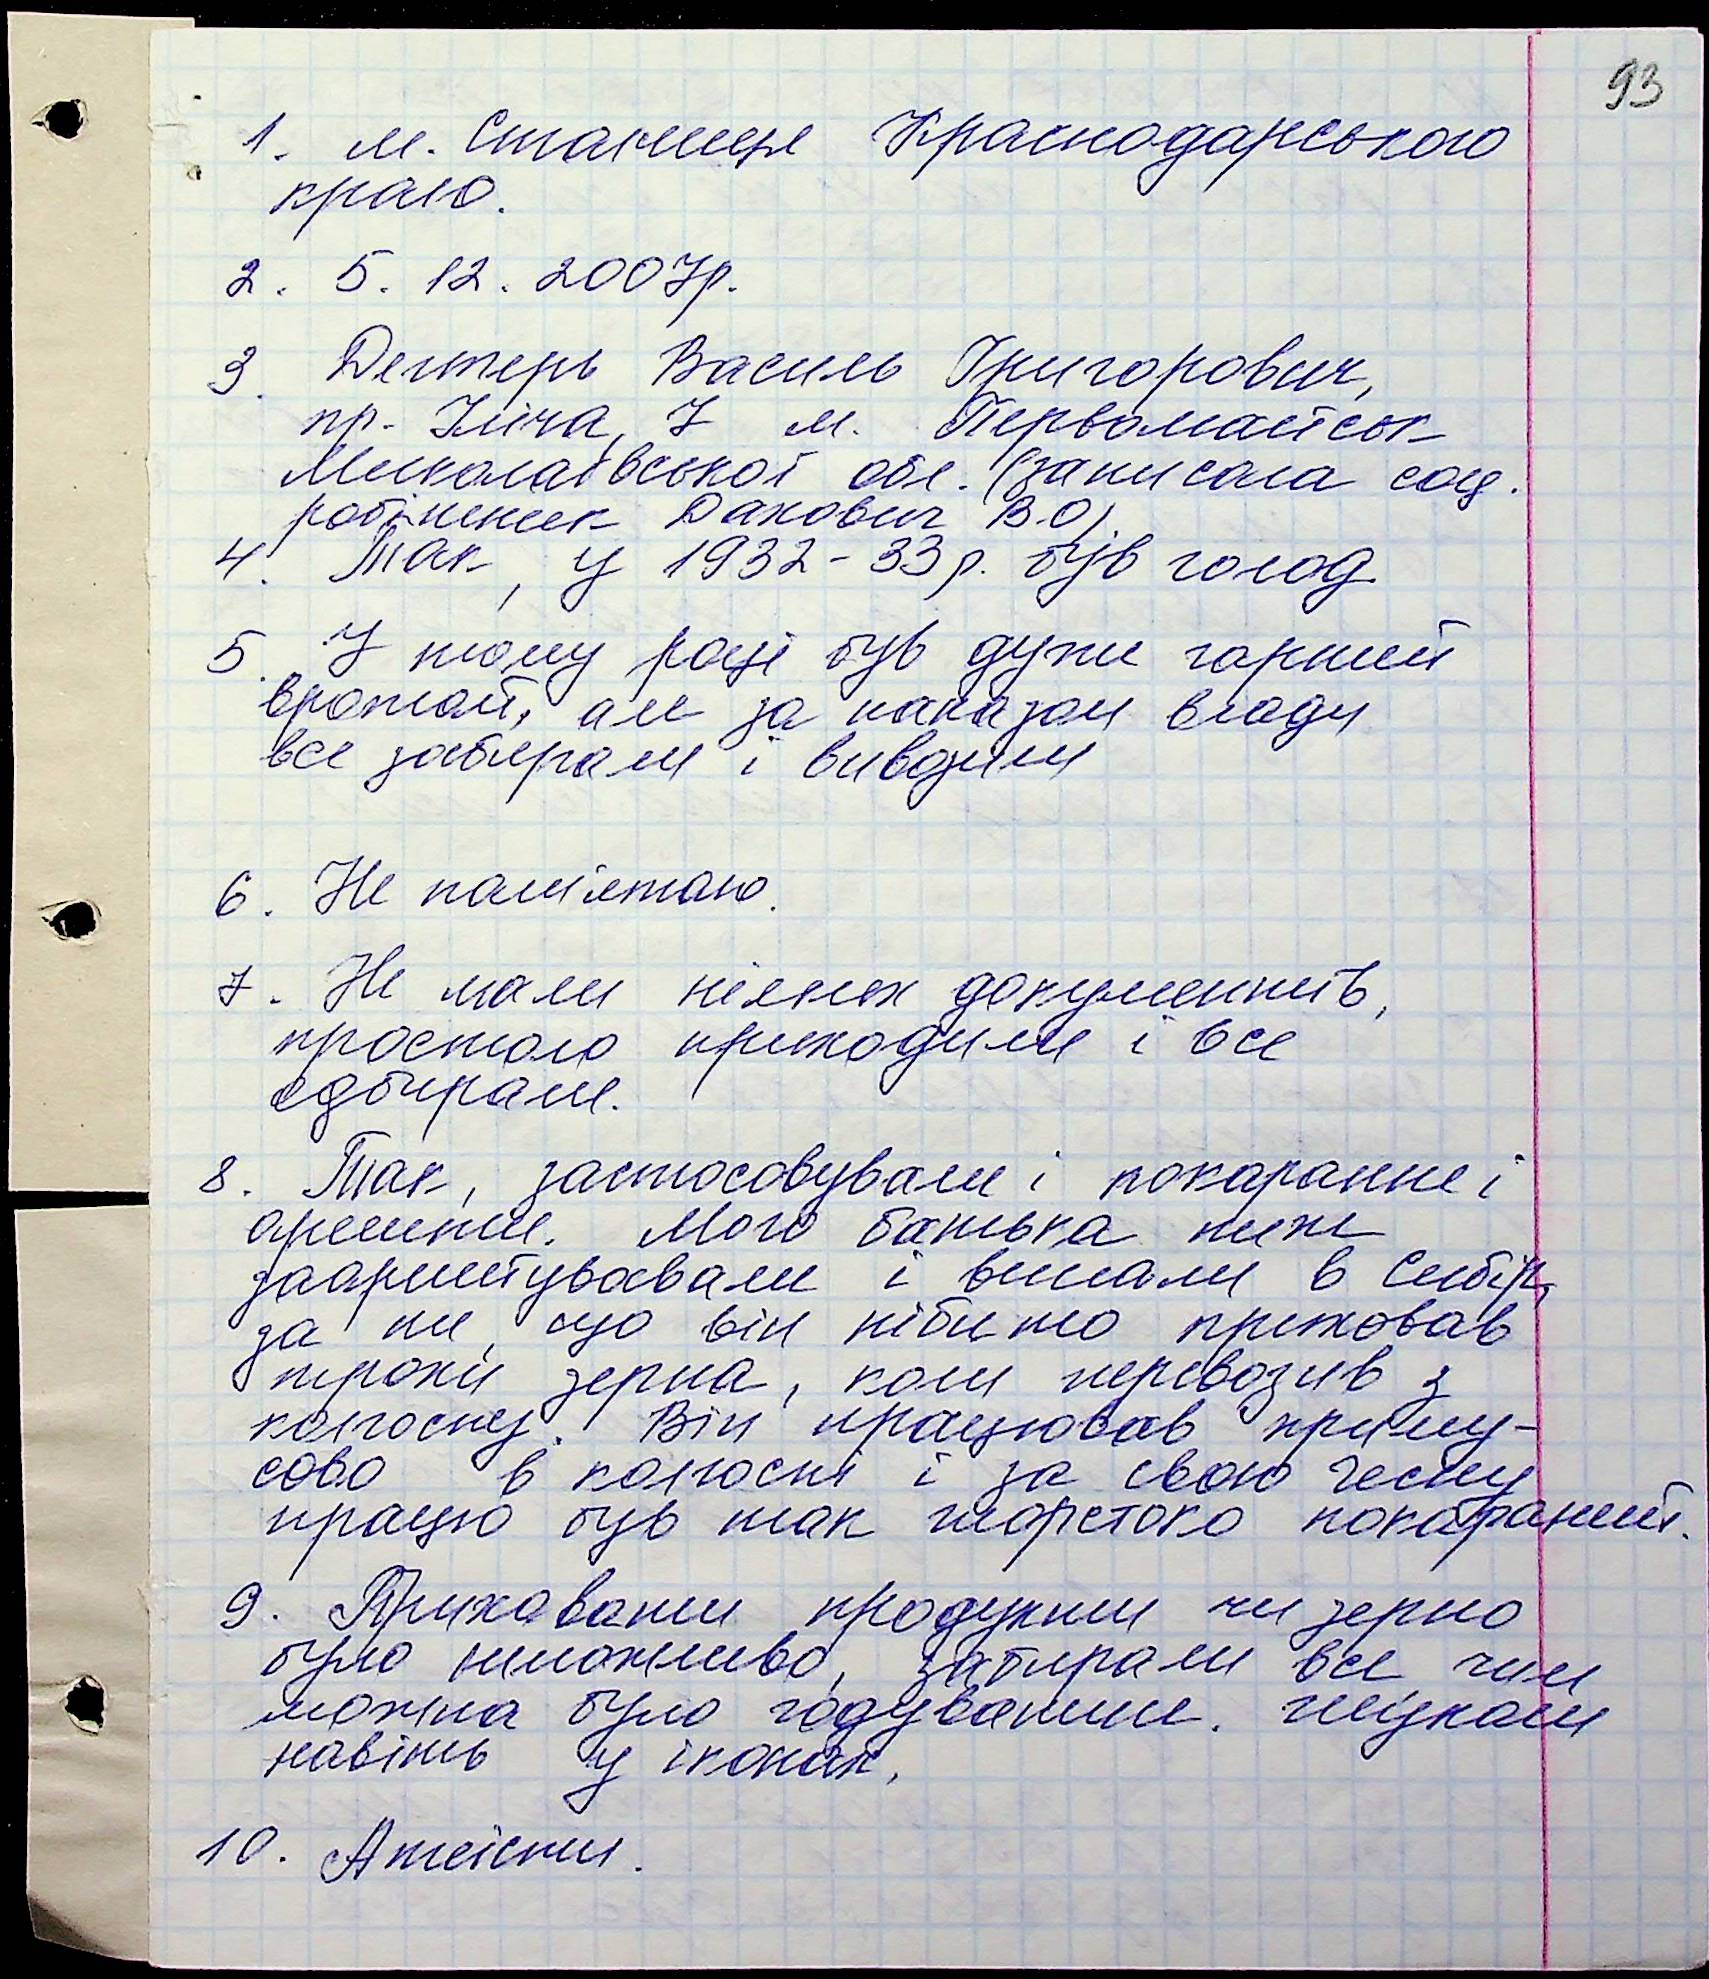 93
1. м. Станиця Краснодарського
краю.
2. 5. 12. 2007р.
3. Дегтерь Василь Григорович,
пр. Ілліча, 7 м. Первомайськ
Миколаївської обл. (записала соц.
робітник Дакович В.О).
4. Так, у 1932-33р. був голод
5. У тому році був дуже гарний
врожай, але за наказом влади
все забирали і вивозили
6. Не пам'ятаю.
7. Не мали ніяких документів,
простого приходили і все
одбирали.
8. Так, застосовували і покарання і
арешти. Мого батька теж
заарештувавали і вислали в Сибір,
за те, що він нібито приховав
трохи зерна, коли перевозив з
колгоспу. Він працював приму-
сово в колгоспі і за свою чесну
працю був так жорстоко покараний.
9. Приховати продукти чи зерно
було неможливо, забирали все чим
можна було годуватися. Шукали
навіть у іконах.
10. Атеїсти.